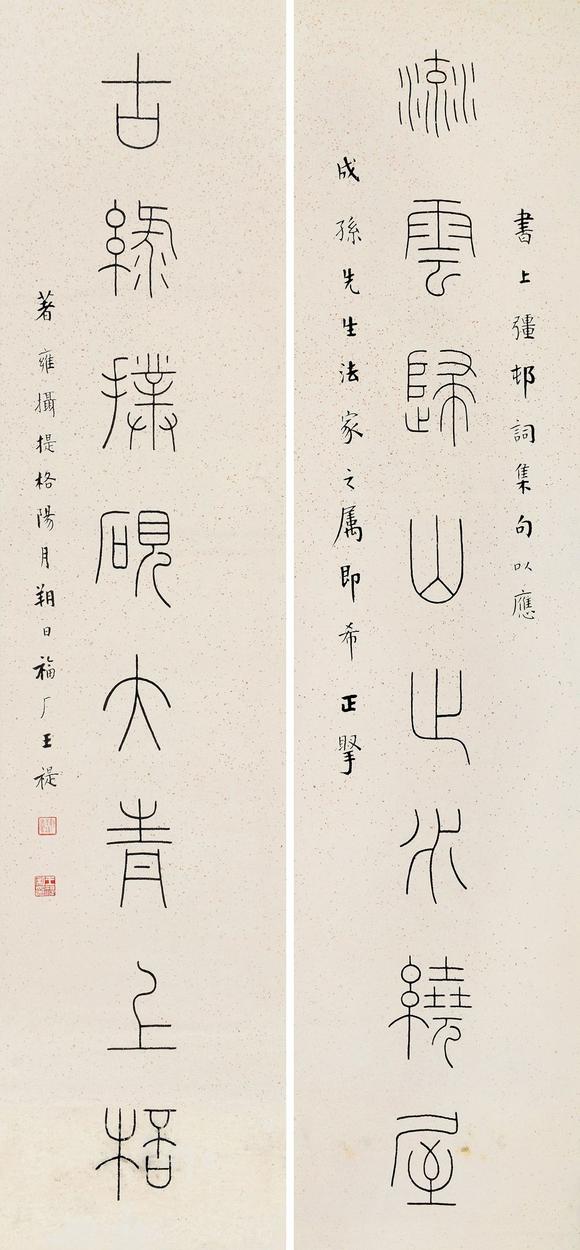 書上彊邨詞集句以應
流雲歸山止水繞屋
成孫先生法家之属即希正掔
古綠撲硯大青上梧
著雍攝提格陽月朔日福厂王禔